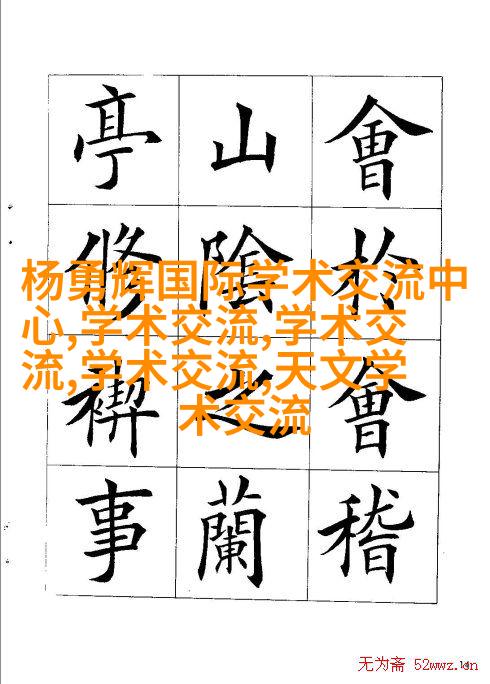 會於會稽
山陰之蘭
亭脩禊事
杨勇辉国际学术交流中
心,学术交流,学术交
流,学术交流,天文学
术交流
无为斋 52wwz.cn